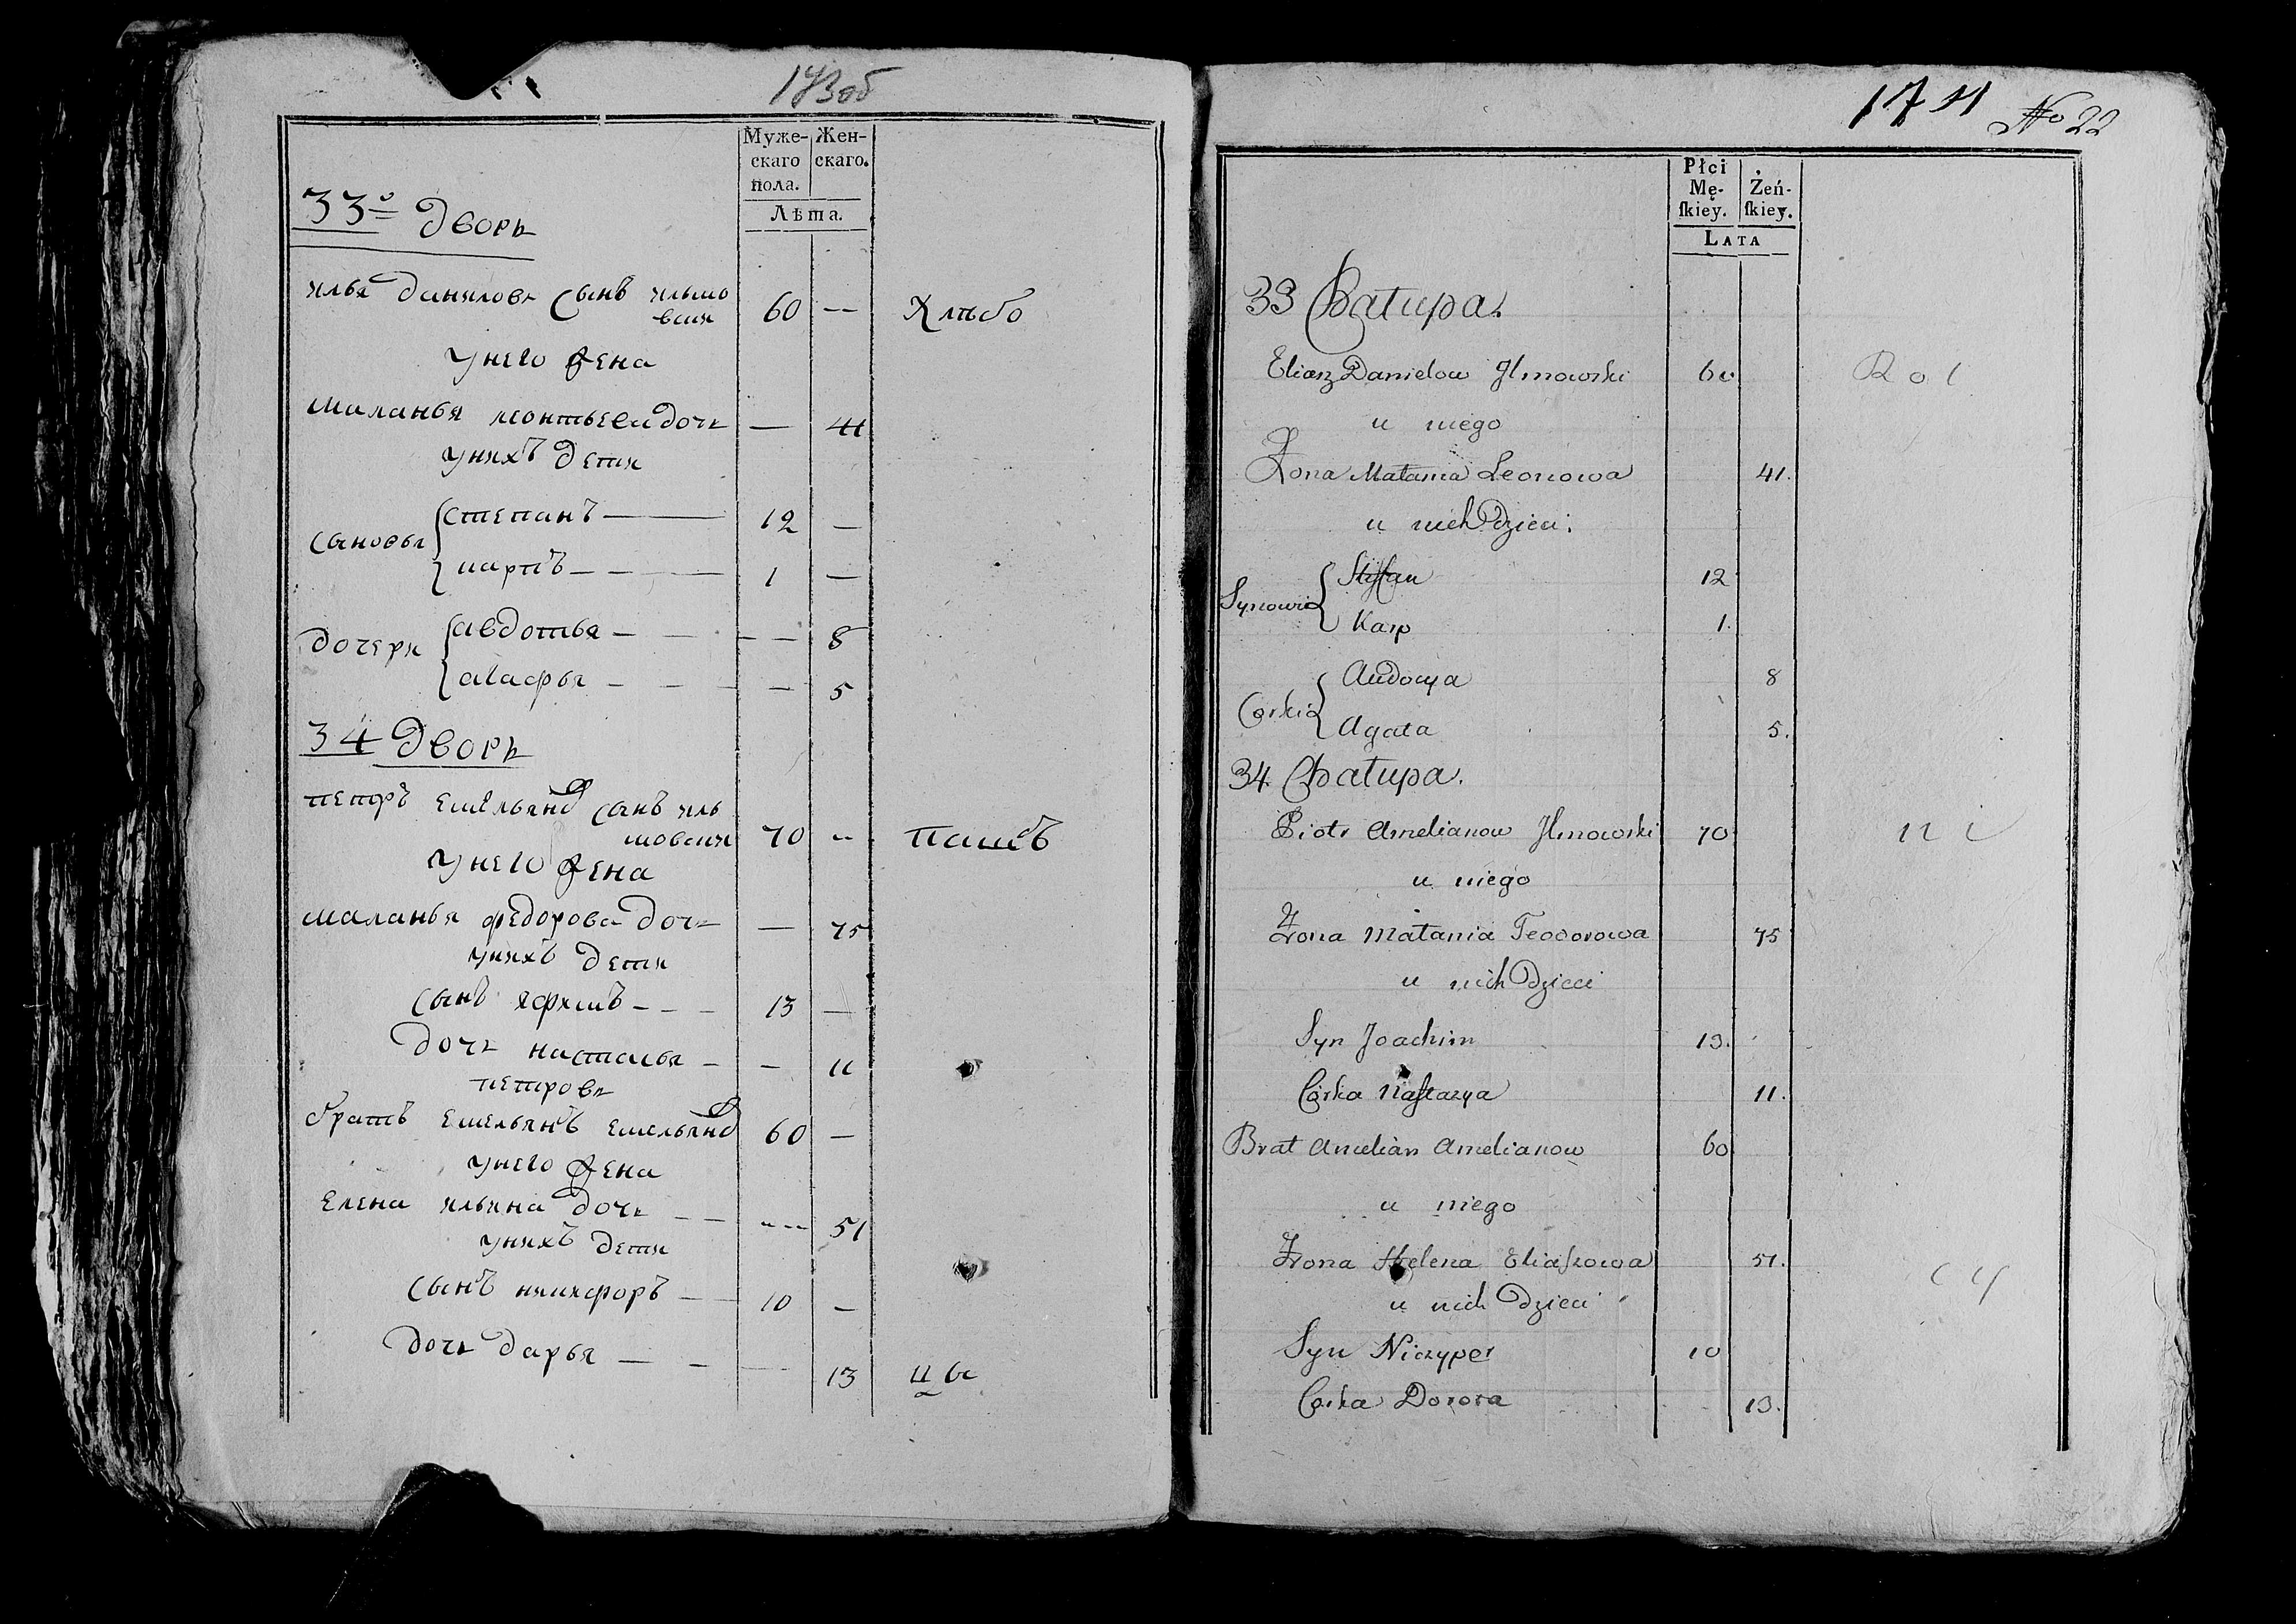 173об
Муже-
скаго
пола.
Жен-
скаго.
Лѣта.
33º Дворъ
илья Данилова Сынъ ильмо
вски 60 -- Хлѣбо
у него жена
маланья леонтьева дочь — 41
у нихъ дети
Сыновья
степанъ — 12 —
карпъ — — — 1 —
дочери
авдотья — — — — 8
агафья — — — — 5
34 Дворъ
петръ Емельяно Сынъ иль
мовски 70 -- пашъ
у него жена
маланья федорова дочь — 75
у нихъ дети
Сынъ якимъ — — — 13 —
Дочь настасья — — 11
петрова
братъ Емельянъ Емельяно 60 —
у него жена
Елена ильина дочь — — --- 51
у нихъ дети
Сынъ никифоръ — — 10 —
дочь дарья — — --- 13 цы
174 № 22
Płci
Mę-
ſkiey.
Żeń-
ſkiey.
LATA
33 Chatupa.
Eliasz Danielow Jlmowski 60 Rol
u niego
Zona Matania Leonowa 41.
u nich Dzieci:
Synowie
Styfan 12
Karp 1.
Corki
Audocya 8
Agata 5.
34. Chatupa.
Piotr Amelianow Jlmowski 70 ni
u niego
Zona Matania Teodorowa 75
u nich Dzieci
Syn Joachim 13.
Corka Naſtazya 11.
Brat Amelian Amelianow 60
u niego
Zona Helena Eliaſzowa 51.
cy
u nich Dzieci
Syn Niczyper 10
Corka Dorota 13.